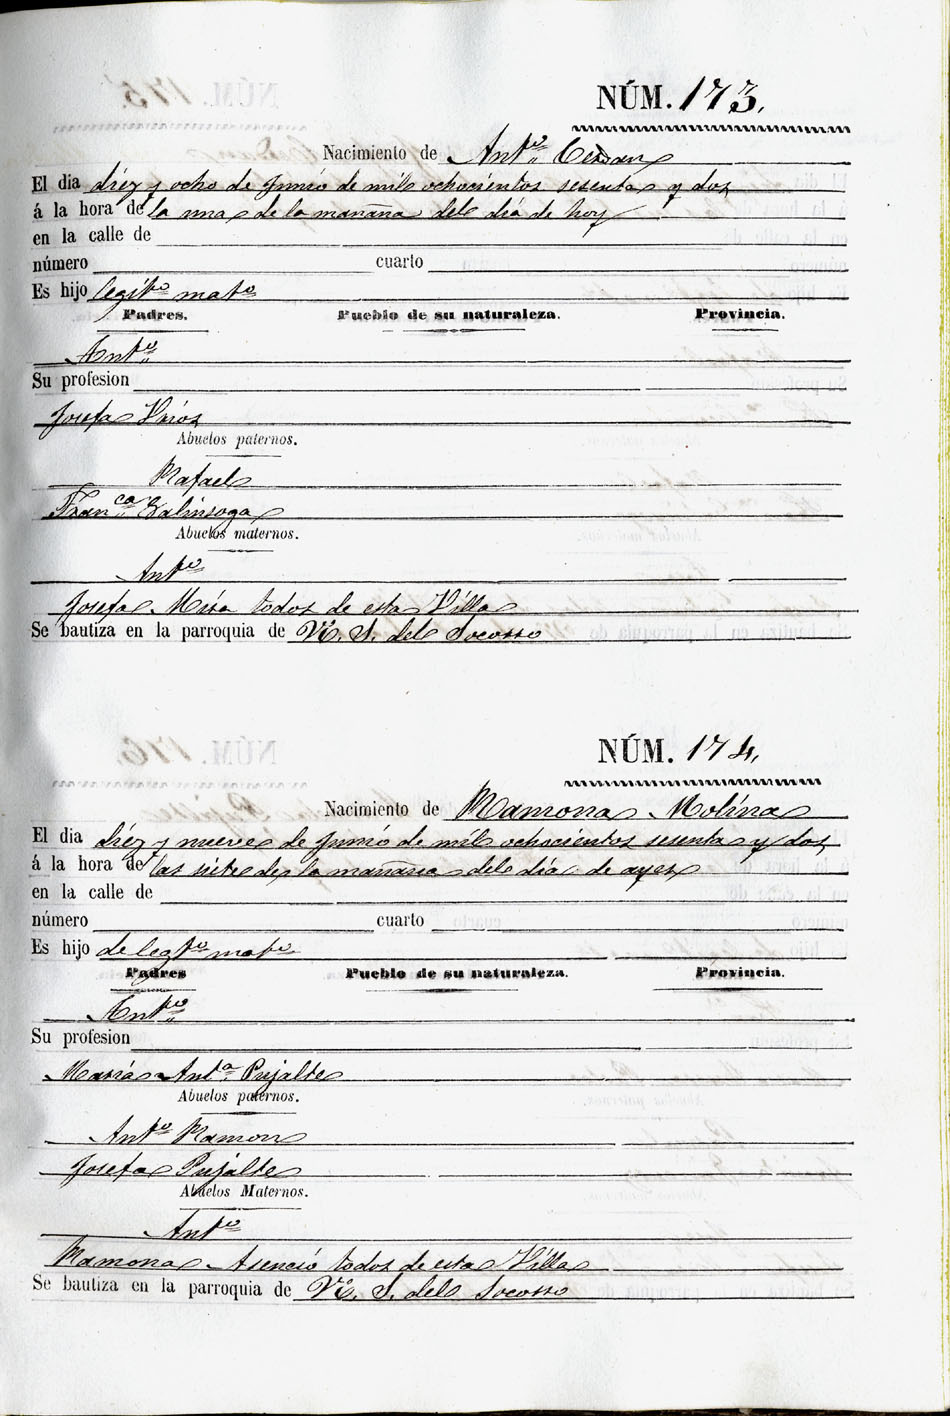 NÚM. 173.
Nacimiento de Ant.º Cerdan
El dia diez y ocho de Junio de mil ochocientos sesenta y dos
á la hora de la una de la mañana del dia de hoy
en la calle de
número cuarto
Es hijo legit.º mat.º
Padres. Pueblo de su naturaleza. Provincia.
Ant.º
Su profesion
Josefa
Abuelos paternos.
Rafael
Fran.ca Galinsoga
Abuelos maternos.
Ant.º
Josefa Mira todos de esta Villa
Se bautiza en la parroquia de N. S. del Socorro
NÚM. 174.
Nacimiento de Ramona Molina
El dia diez y nueve de Junio de mil ochocientos sesenta y dos
á la hora de las siete de la mañana del dia de ayer
en la calle de
número cuarto
Es hijo de legt.º mat.º
Padres Pueblo de su naturaleza. Provincia.
Ant.º
Su profesion
Maria Ant.a Pujalte
Abuelos paternos.
Ant.º Ramon
Josefa Pujalte
Abuelos Maternos.
Ant.º
Ramona Asencio todos de esta Villa
Se bautiza en la parroquia de N. S. del Socorro